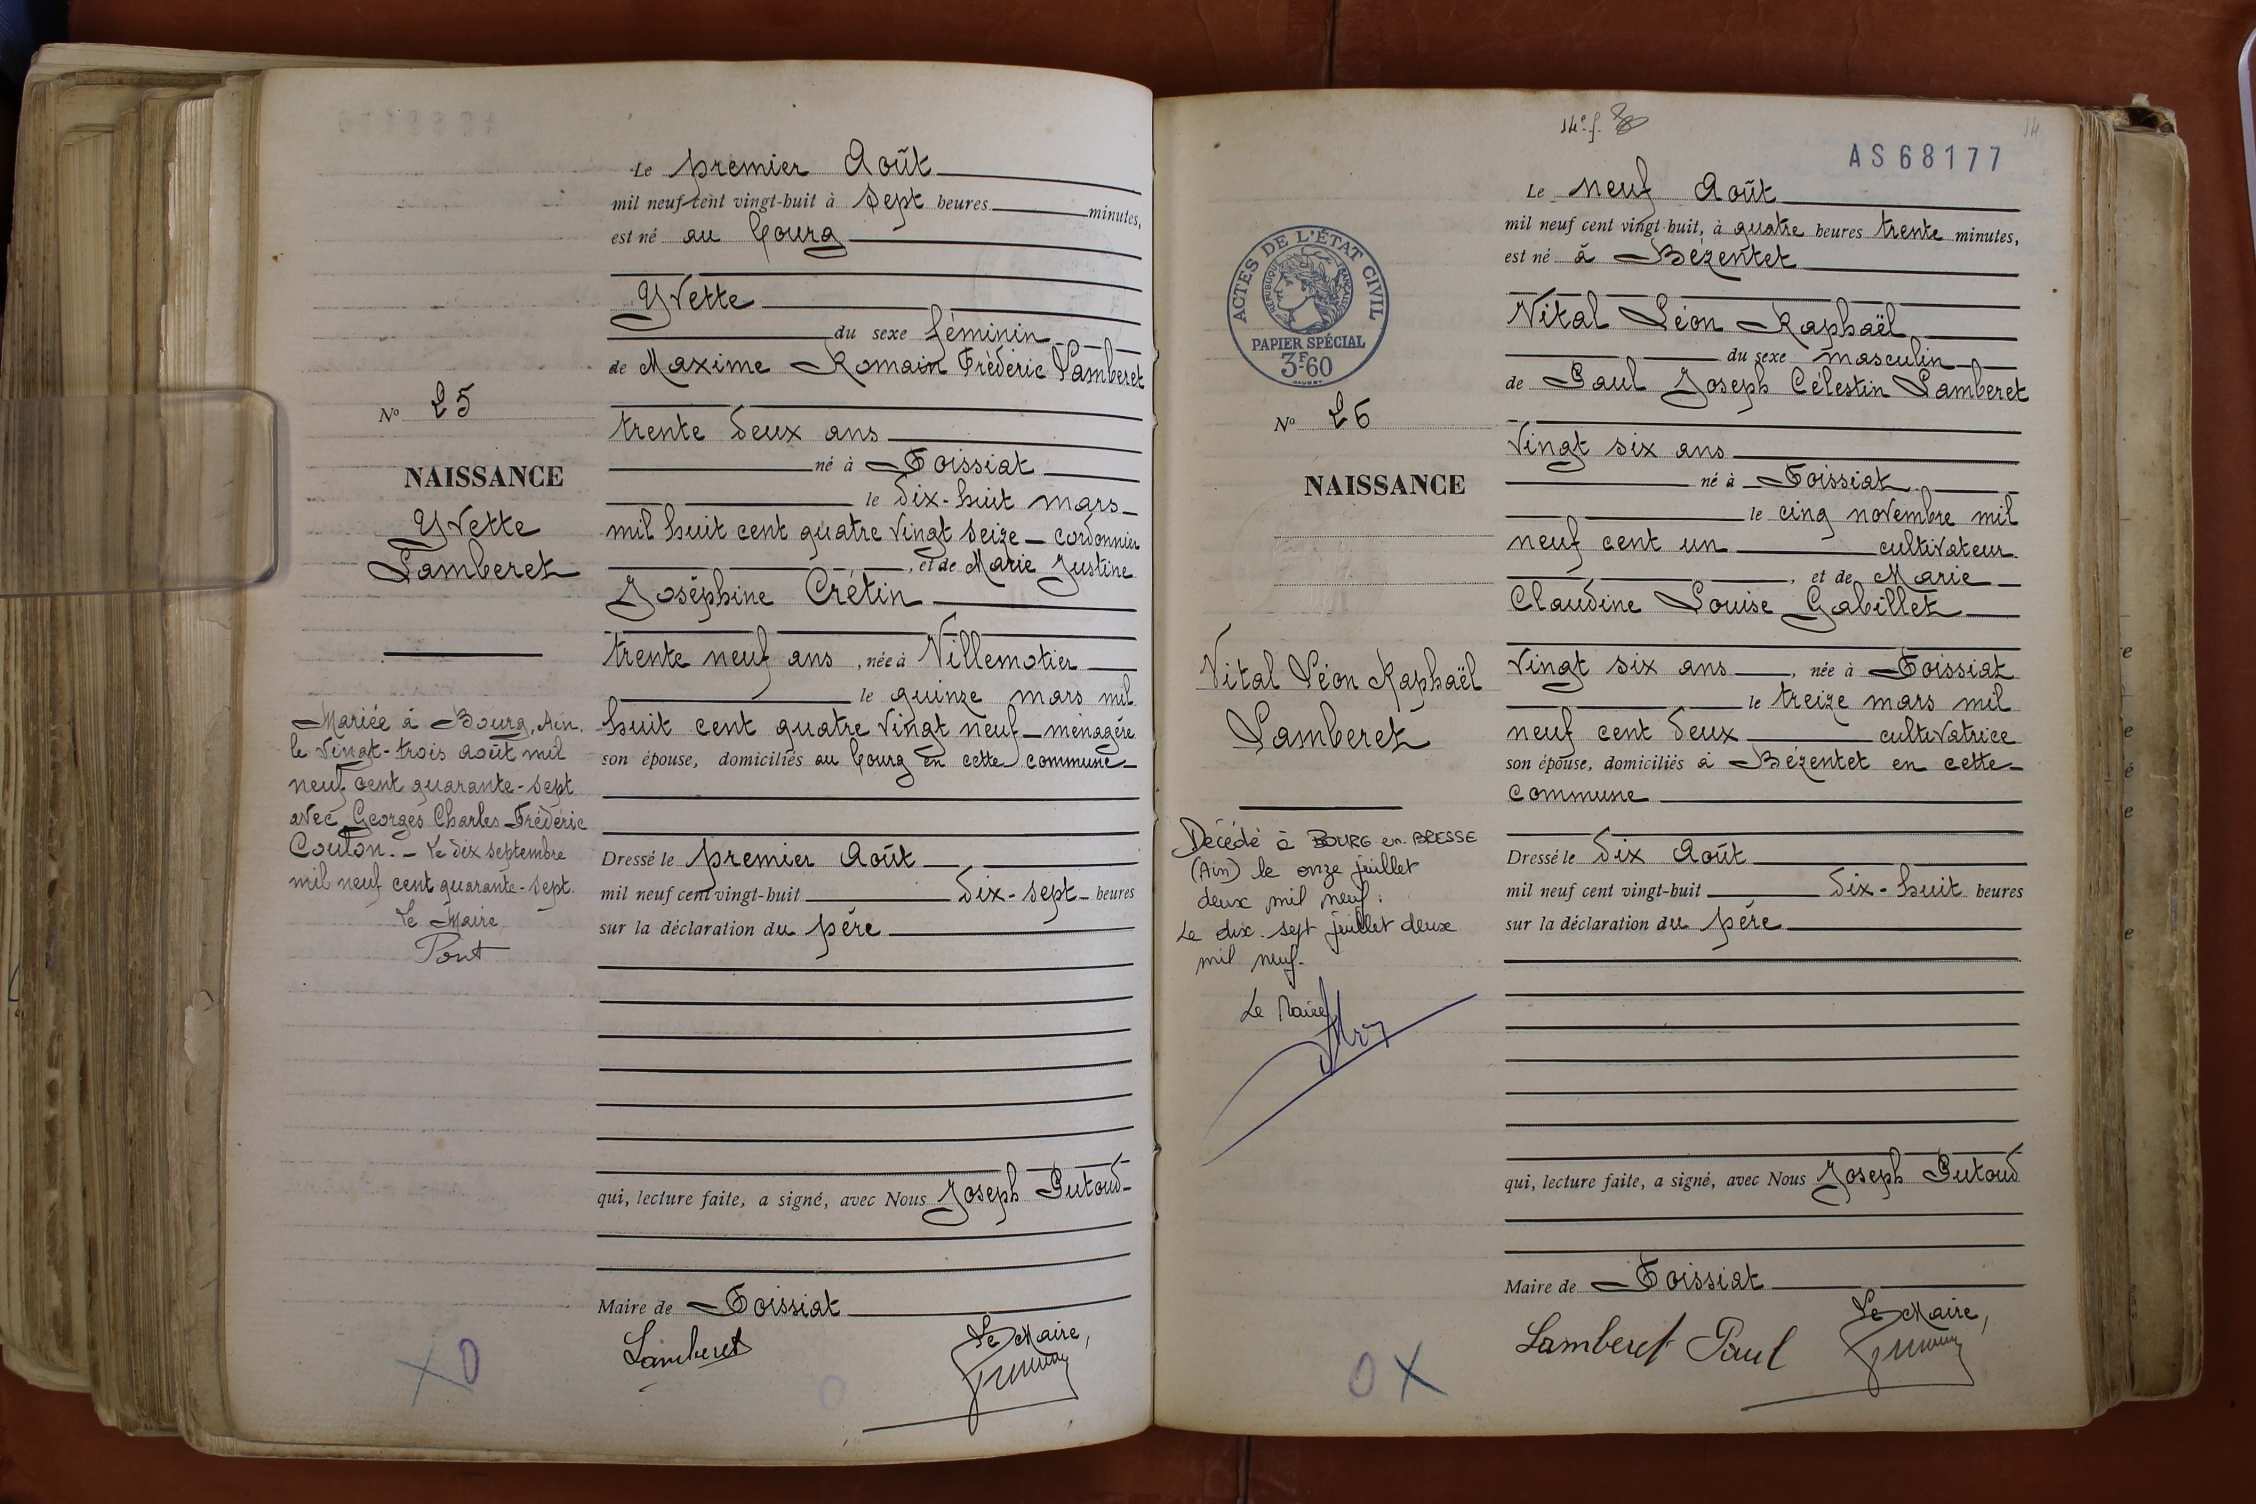 Le premier Août
mil neuf cent vingt-huit à sept heures minutes,
est né au bourg
Yvette
du sexe féminin
de Maxime Romain Frédéric Lamberet
N° 25
trente deux ans
né à Foissiat
NAISSANCE
le dix-huit mars
Yvette
mil huit cent quatre vingt seize cordonnier
Lamberet
, et de Marie Justine
Joséphine Crétin
trente neuf ans , née à Villemotier
le quinze mars mil
huit cent quatre vingt neuf ménagère
son épouse, domiciliés au bourg en cette commune
Mariée à Bourg, Ain,
le vingt-trois août mil
neuf cent quarante-sept
avec Georges Charles Frédéric
Coulon. - Le dix septembre
mil neuf cent quarante-sept.
Le Maire
Pont
Dressé le premier Août
mil neuf cent vingt-huit dix-sept heures
sur la déclaration du père
qui, lecture faite, a signé, avec Nous Joseph Putoud
Maire de Foissiat
Lamberet
Le Maire,
X O
14e f.
14
AS68177
Le neuf Août
mil neuf cent vingt-huit, à quatre heures trente minutes,
est né à Bézentet
ACTES DE L'ÉTAT CIVIL
RÉPUBLIQUE FRANÇAISE
PAPIER SPÉCIAL
3F60
Vital Léon Raphaël
du sexe masculin
de Paul Joseph Célestin Lamberet
N° 26
vingt six ans
né à Foissiat
NAISSANCE
le cinq novembre mil
neuf cent un cultivateur
, et de Marie
Claudine Louise Gabillet
Vital Léon Raphaël
Lamberet
vingt six ans , née à Foissiat
le treize mars mil
neuf cent deux cultivatrice
son épouse, domiciliés à Bézentet en cette
commune
Décédé à BOURG en BRESSE
(Ain) le onze juillet
deux mil neuf.
Le dix-sept juillet deux
mil neuf.
Le Maire
Dressé le dix Août
mil neuf cent vingt-huit dix-huit heures
sur la déclaration du père
qui, lecture faite, a signé, avec Nous Joseph Putoud
Maire de Foissiat
Lamberet Paul
Le Maire,
O X